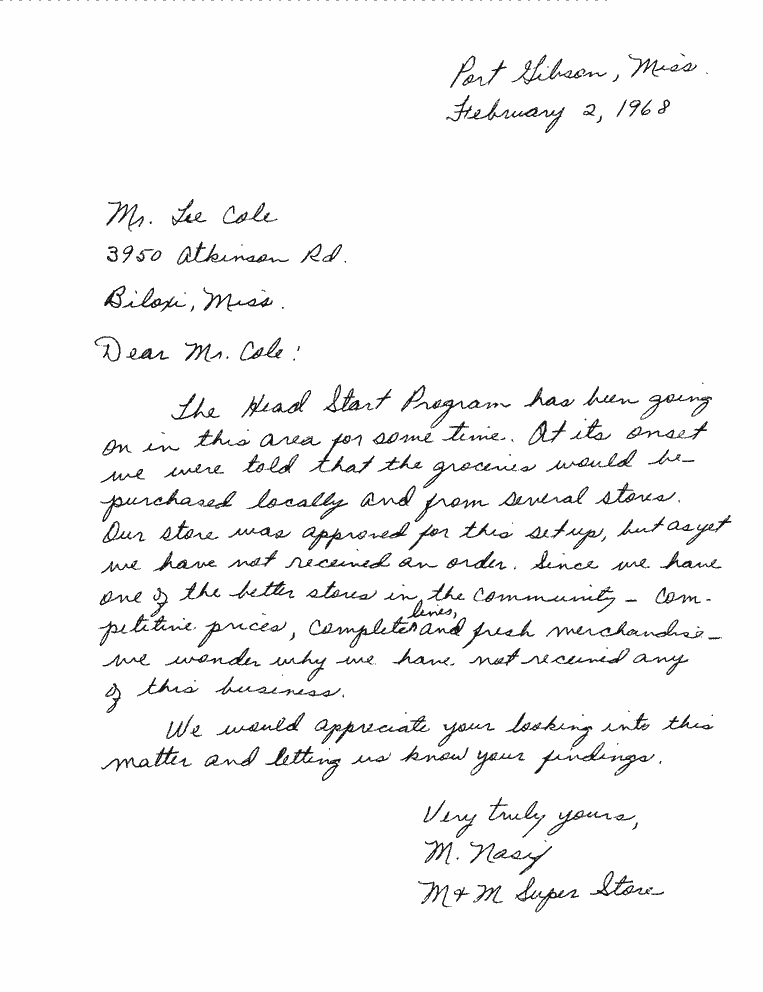 Port Gibson, Miss.
February 2, 1968
Mr. Lee Cole
3950 Atkinson Rd.
Biloxi, Miss.
Dear Mr. Cole:
The Head Start Program has been going
on in this area for some time. At its onset
we were told that the groceries would be
purchased locally and from several stores.
Our store was approved for this setup, but as yet
we have not received an order. Since we have
one of the better stores in the community - com-
petitive prices, complete lines, and fresh merchandise -
we wonder why we have not received any
of this business.
We would appreciate your looking into this
matter and letting us know your findings.
Very truly yours,
M. Nasif
M & M Super Store